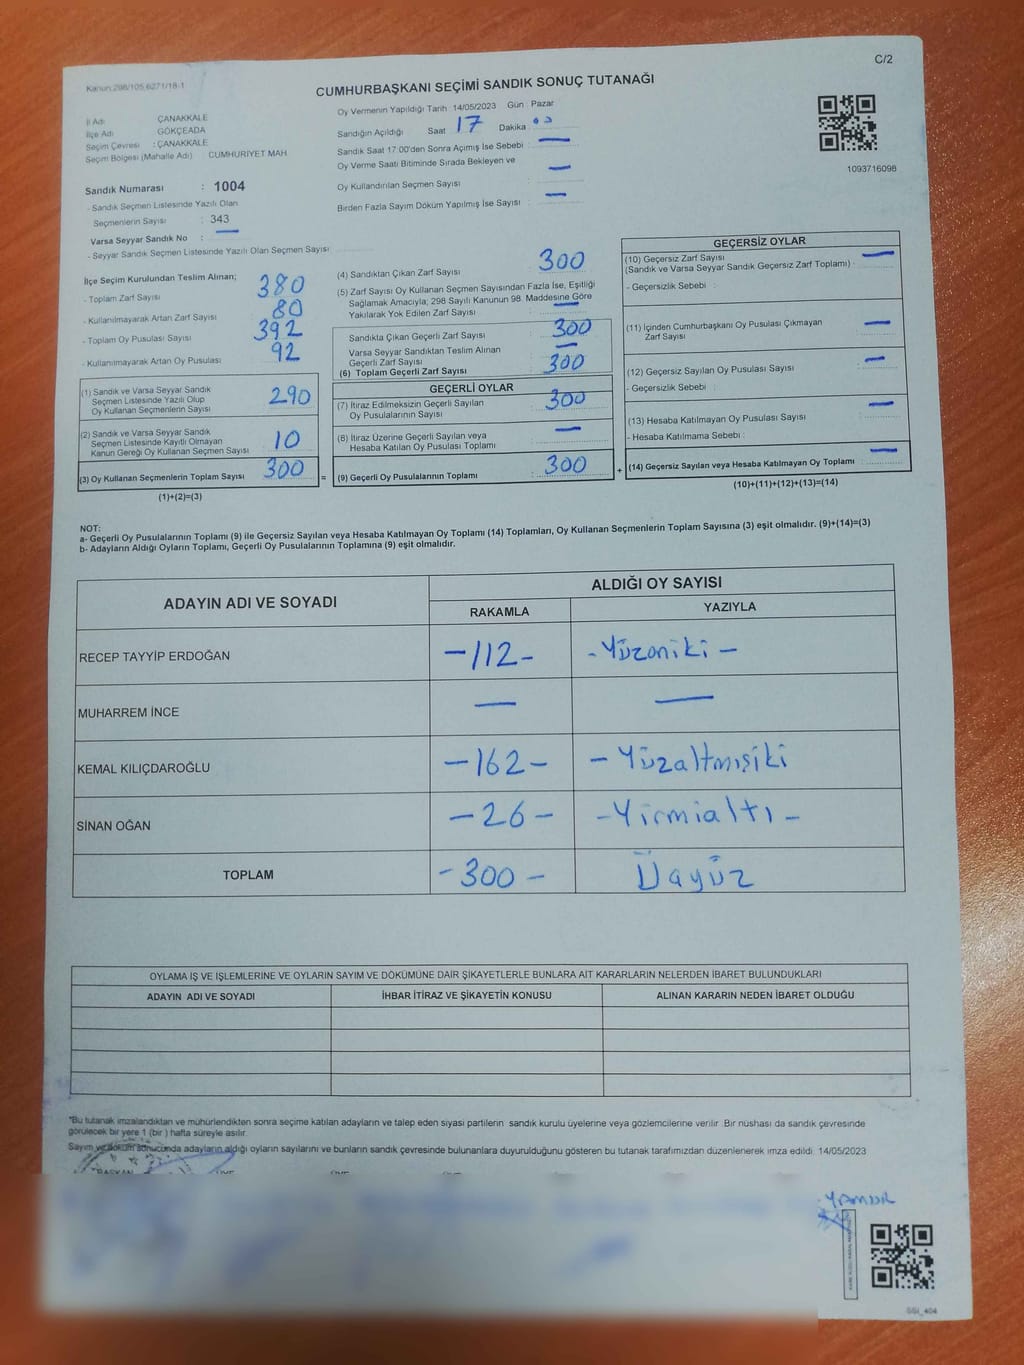 C/2
Kanun:298/105,6271/18-1
CUMHURBAŞKANI SEÇİMİ SANDIK SONUÇ TUTANAĞI
İl Adı : ÇANAKKALE
İlçe Adı : GÖKÇEADA
Seçim Çevresi : ÇANAKKALE
Seçim Bölgesi (Mahalle Adı) CUMHURİYET MAH
Sandık Numarası : 1004
- Sandık Seçmen Listesinde Yazılı Olan
Seçmenlerin Sayısı : 343
Varsa Seyyar Sandık No : —
- Seyyar Sandık Seçmen Listesinde Yazılı Olan Seçmen Sayısı
Oy Vermenin Yapıldığı Tarih 14/05/2023 Gün Pazar
Sandığın Açıldığı Saat 17 Dakika 00
Sandık Saat 17:00'den Sonra Açılmış İse Sebebi : —
Oy Verme Saati Bitiminde Sırada Bekleyen ve
Oy Kullandırılan Seçmen Sayısı : —
Birden Fazla Sayım Döküm Yapılmış İse Sayısı : —
1093716098
İlçe Seçim Kurulundan Teslim Alınan;
- Toplam Zarf Sayısı 380
- Kullanılmayarak Artan Zarf Sayısı 80
- Toplam Oy Pusulası Sayısı 392
- Kullanılmayarak Artan Oy Pusulası 92
(1) Sandık ve Varsa Seyyar Sandık
Seçmen Listesinde Yazılı Olup
Oy Kullanan Seçmenlerin Sayısı 290
(2) Sandık ve Varsa Seyyar Sandık
Seçmen Listesinde Kayıtlı Olmayan
Kanun Gereği Oy Kullanan Seçmen Sayısı 10
(3) Oy Kullanan Seçmenlerin Toplam Sayısı 300
(1)+(2)=(3)
(4) Sandıktan Çıkan Zarf Sayısı : 300
(5) Zarf Sayısı Oy Kullanan Seçmen Sayısından Fazla İse, Eşitliği
Sağlamak Amacıyla; 298 Sayılı Kanunun 98. Maddesine Göre
Yakılarak Yok Edilen Zarf Sayısı : —
Sandıkta Çıkan Geçerli Zarf Sayısı : 300
Varsa Seyyar Sandıktan Teslim Alınan
Geçerli Zarf Sayısı : —
(6) Toplam Geçerli Zarf Sayısı : 300
GEÇERLİ OYLAR
(7) İtiraz Edilmeksizin Geçerli Sayılan
Oy Pusulalarının Sayısı : 300
(8) İtiraz Üzerine Geçerli Sayılan veya
Hesaba Katılan Oy Pusulası Toplamı : —
= (9) Geçerli Oy Pusulalarının Toplamı : 300
GEÇERSİZ OYLAR
(10) Geçersiz Zarf Sayısı
(Sandık ve Varsa Seyyar Sandık Geçersiz Zarf Toplamı) : —
- Geçersizlik Sebebi :
(11) İçinden Cumhurbaşkanı Oy Pusulası Çıkmayan
Zarf Sayısı : —
(12) Geçersiz Sayılan Oy Pusulası Sayısı : —
- Geçersizlik Sebebi :
(13) Hesaba Katılmayan Oy Pusulası Sayısı : —
- Hesaba Katılmama Sebebi :
+ (14) Geçersiz Sayılan veya Hesaba Katılmayan Oy Toplamı : —
(10)+(11)+(12)+(13)=(14)
NOT:
a- Geçerli Oy Pusulalarının Toplamı (9) ile Geçersiz Sayılan veya Hesaba Katılmayan Oy Toplamı (14) Toplamları, Oy Kullanan Seçmenlerin Toplam Sayısına (3) eşit olmalıdır. (9)+(14)=(3)
b- Adayların Aldığı Oyların Toplamı, Geçerli Oy Pusulalarının Toplamına (9) eşit olmalıdır.
ADAYIN ADI VE SOYADI ALDIĞI OY SAYISI
RAKAMLA YAZIYLA
RECEP TAYYİP ERDOĞAN -112- -Yüzoniki-
MUHARREM İNCE — —
KEMAL KILIÇDAROĞLU -162- -Yüzaltmışiki
SİNAN OĞAN -26- -Yirmialtı-
TOPLAM -300- Üçyüz
OYLAMA İŞ VE İŞLEMLERİNE VE OYLARIN SAYIM VE DÖKÜMÜNE DAİR ŞİKAYETLERLE BUNLARA AİT KARARLARIN NELERDEN İBARET BULUNDUKLARI
ADAYIN ADI VE SOYADI İHBAR İTİRAZ VE ŞİKAYETİN KONUSU ALINAN KARARIN NEDEN İBARET OLDUĞU
*Bu tutanak imzalandıktan ve mühürlendikten sonra seçime katılan adayların ve talep eden siyasi partilerin sandık kurulu üyelerine veya gözlemcilerine verilir. Bir nüshası da sandık çevresinde
görülecek bir yere 1 (bir) hafta süreyle asılır.
Sayım ve döküm sonucunda adayların aldığı oyların sayılarını ve bunların sandık çevresinde bulunanlara duyurulduğunu gösteren bu tutanak tarafımızdan düzenlenerek imza edildi. 14/05/2023
BAŞKAN
SSI_404